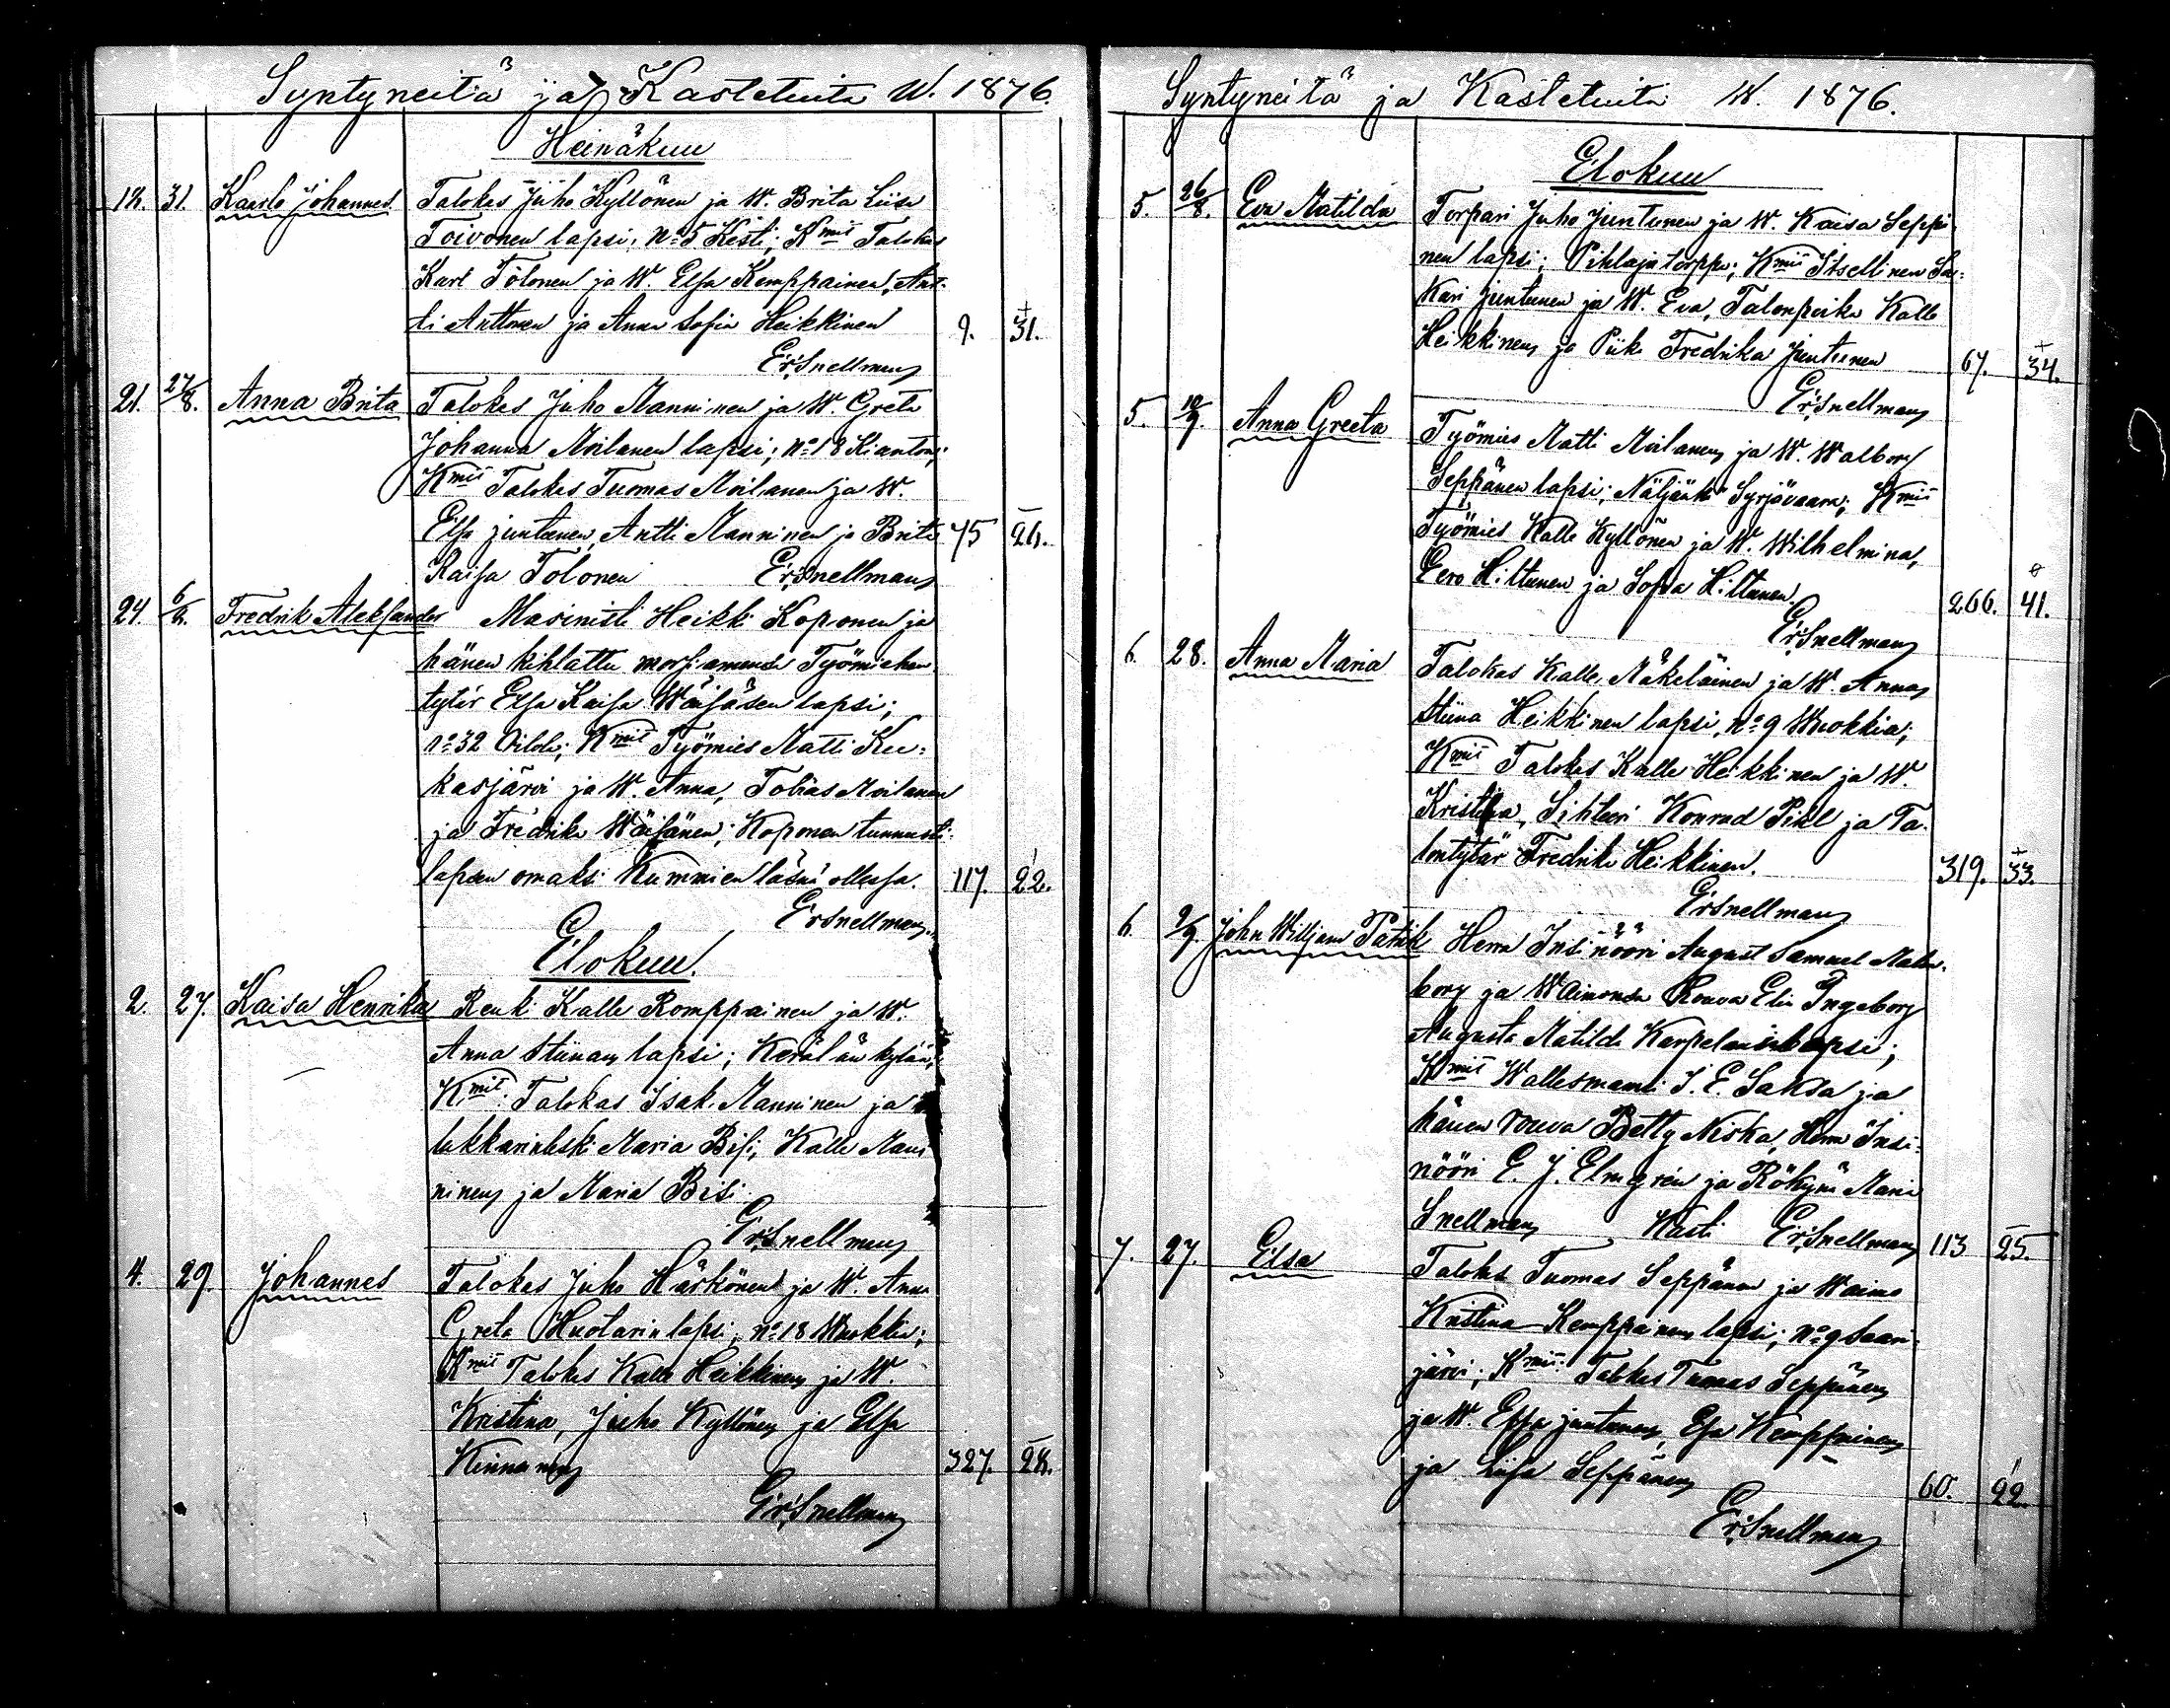 Syntyneitä ja Kastetuita W. 1876.
Heinäkuu
18. 31. Kaarlo Johannes. Talokas Juho Kyllönen ja W. Brita Liisa
Toivonen lapsi; No 5 Kesti; Kmit Talokas
Karl Tolonen ja W. Elsa Kemppainen, Ant-
ti Anttonen ja Anna Sofia Heikkinen 9. 31.
Er. Snellman
21. 27/8. Anna Brita Talokas Juho Manninen ja W. Greta
Johanna Moilanen lapsi; No 18 Kianton;
Kmit Talokas Tuomas Moilanen ja W.
Elsa Juntunen, Antti Manninen ja Brita 45 26.
Kaisa Tolonen Er. Snellman
24. 6/8. Fredrik Aleksander Masinisti Heikki Koponen ja
hänen kihlattu morsiamensa Työmiehen
tytär Elsa Kaisa Wäisäsen lapsi;
No 32 ; Kmit Työmies Matti Ku-
kasjärvi ja W. Anna, Tobias Moilanen
ja Fredrika Wäisänen; Koponen tunnusti
lapsen omaksi Kummien läsnä ollessa. 117. 22.
Er Snellman.
Elokuu.
2. 27. Kaisa Henrika Renki Kalle Romppainen ja W.
Anna Stiinan lapsi; Kerälän kylän;
Kmit. Talokas Isak Manninen ja
lukkarinleski Maria Bisi, Kalle Man-
ninen ja Maria Bisi.
Er. Snellman
4. 29. Johannes Talokas Juho Härkönen ja W. Anna
Greta Huotarin lapsi, No 18 Wuokkia;
Kmit Talokas Kalle Heikkinen ja W.
Kristina, Juho Kyllönen ja Elsa
Kinnunen 327. 28.
Er. Snellman
Syntyneitä ja Kastetuita W. 1876.
Elokuu
5. 26/8. Eva Matilda Torpari Juho Juntunen ja W. Kaisa Seppä-
nen lapsi; Pihlaja torppa; Kmit Itsellinen Sa-
kari Juntunen ja W. Eva, Talonpoika Kalle
Heikkinen ja Piika Fredrika Juntunen 67. 34.
Er. Snellman
5. 10/9. Anna Greeta Työmies Matti Moilanen ja W. Walborg
Seppänen lapsi; Näljänkä Syrjävaara; Kmit
Työmies Kalle Kyllönen ja W. Wilhelmina,
Eero Hiltunen ja Sofia Hiltunen. 266. 41.
Er. Snellman
6. 28. Anna Maria Talokas Kalle Mäkeläinen ja W. Anna
Stiina Heikkinen lapsi, No 9 Wuokkia;
Kmit Talokas Kalle Heikkinen ja W.
Kristina, Sihteeri Konrad Pihl ja Ta-
lontytär Fredrika Heikkinen. 319. 33.
Er Snellman
6. 2/9. John Williams Patrik Herra Insinööri August Samuel Malm-
borg ja Waimonsa Rouva Elin Ingeborg
Augusta Matilda Karpelanin lapsi;
Kmit Wallesmanni J. E. Saksa ja
hänen rouva Betty Niska, Herra Insi-
nööri E. J. Elmgrén ja Rökynä Maria
Snellman Kasti Er. Snellman 113 25.
7. 27. Elsa Talokas Tuomas Seppänen ja Waimo
Kristina Kemppainen lapsi; No 9 Saari-
järvi; Kmit. Talokas Tuomas Seppänen
ja W. Elsa Juntunen, Elsa Kemppainen
ja Liisa Seppänen 60. 22.
Er. Snellman